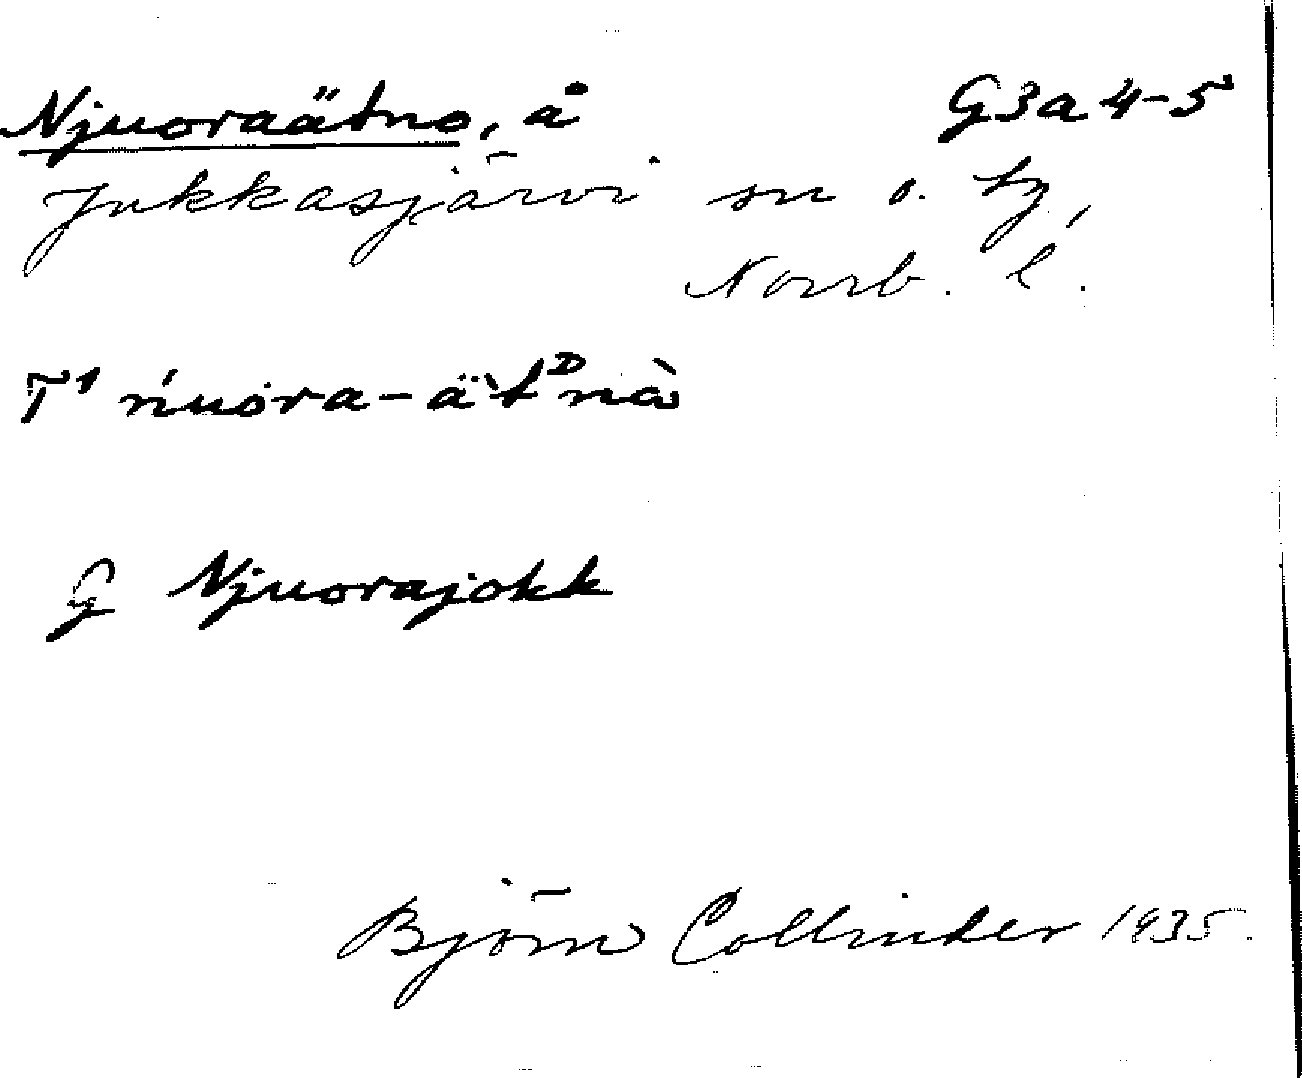 Njuoraätno, å G3a 4-5
Jukkasjärvi sn o. tg,
Norrb. l.
T¹ ńuòra-ä̀tᴰnà
G Njuorajokk
Björn Collinder 1935.